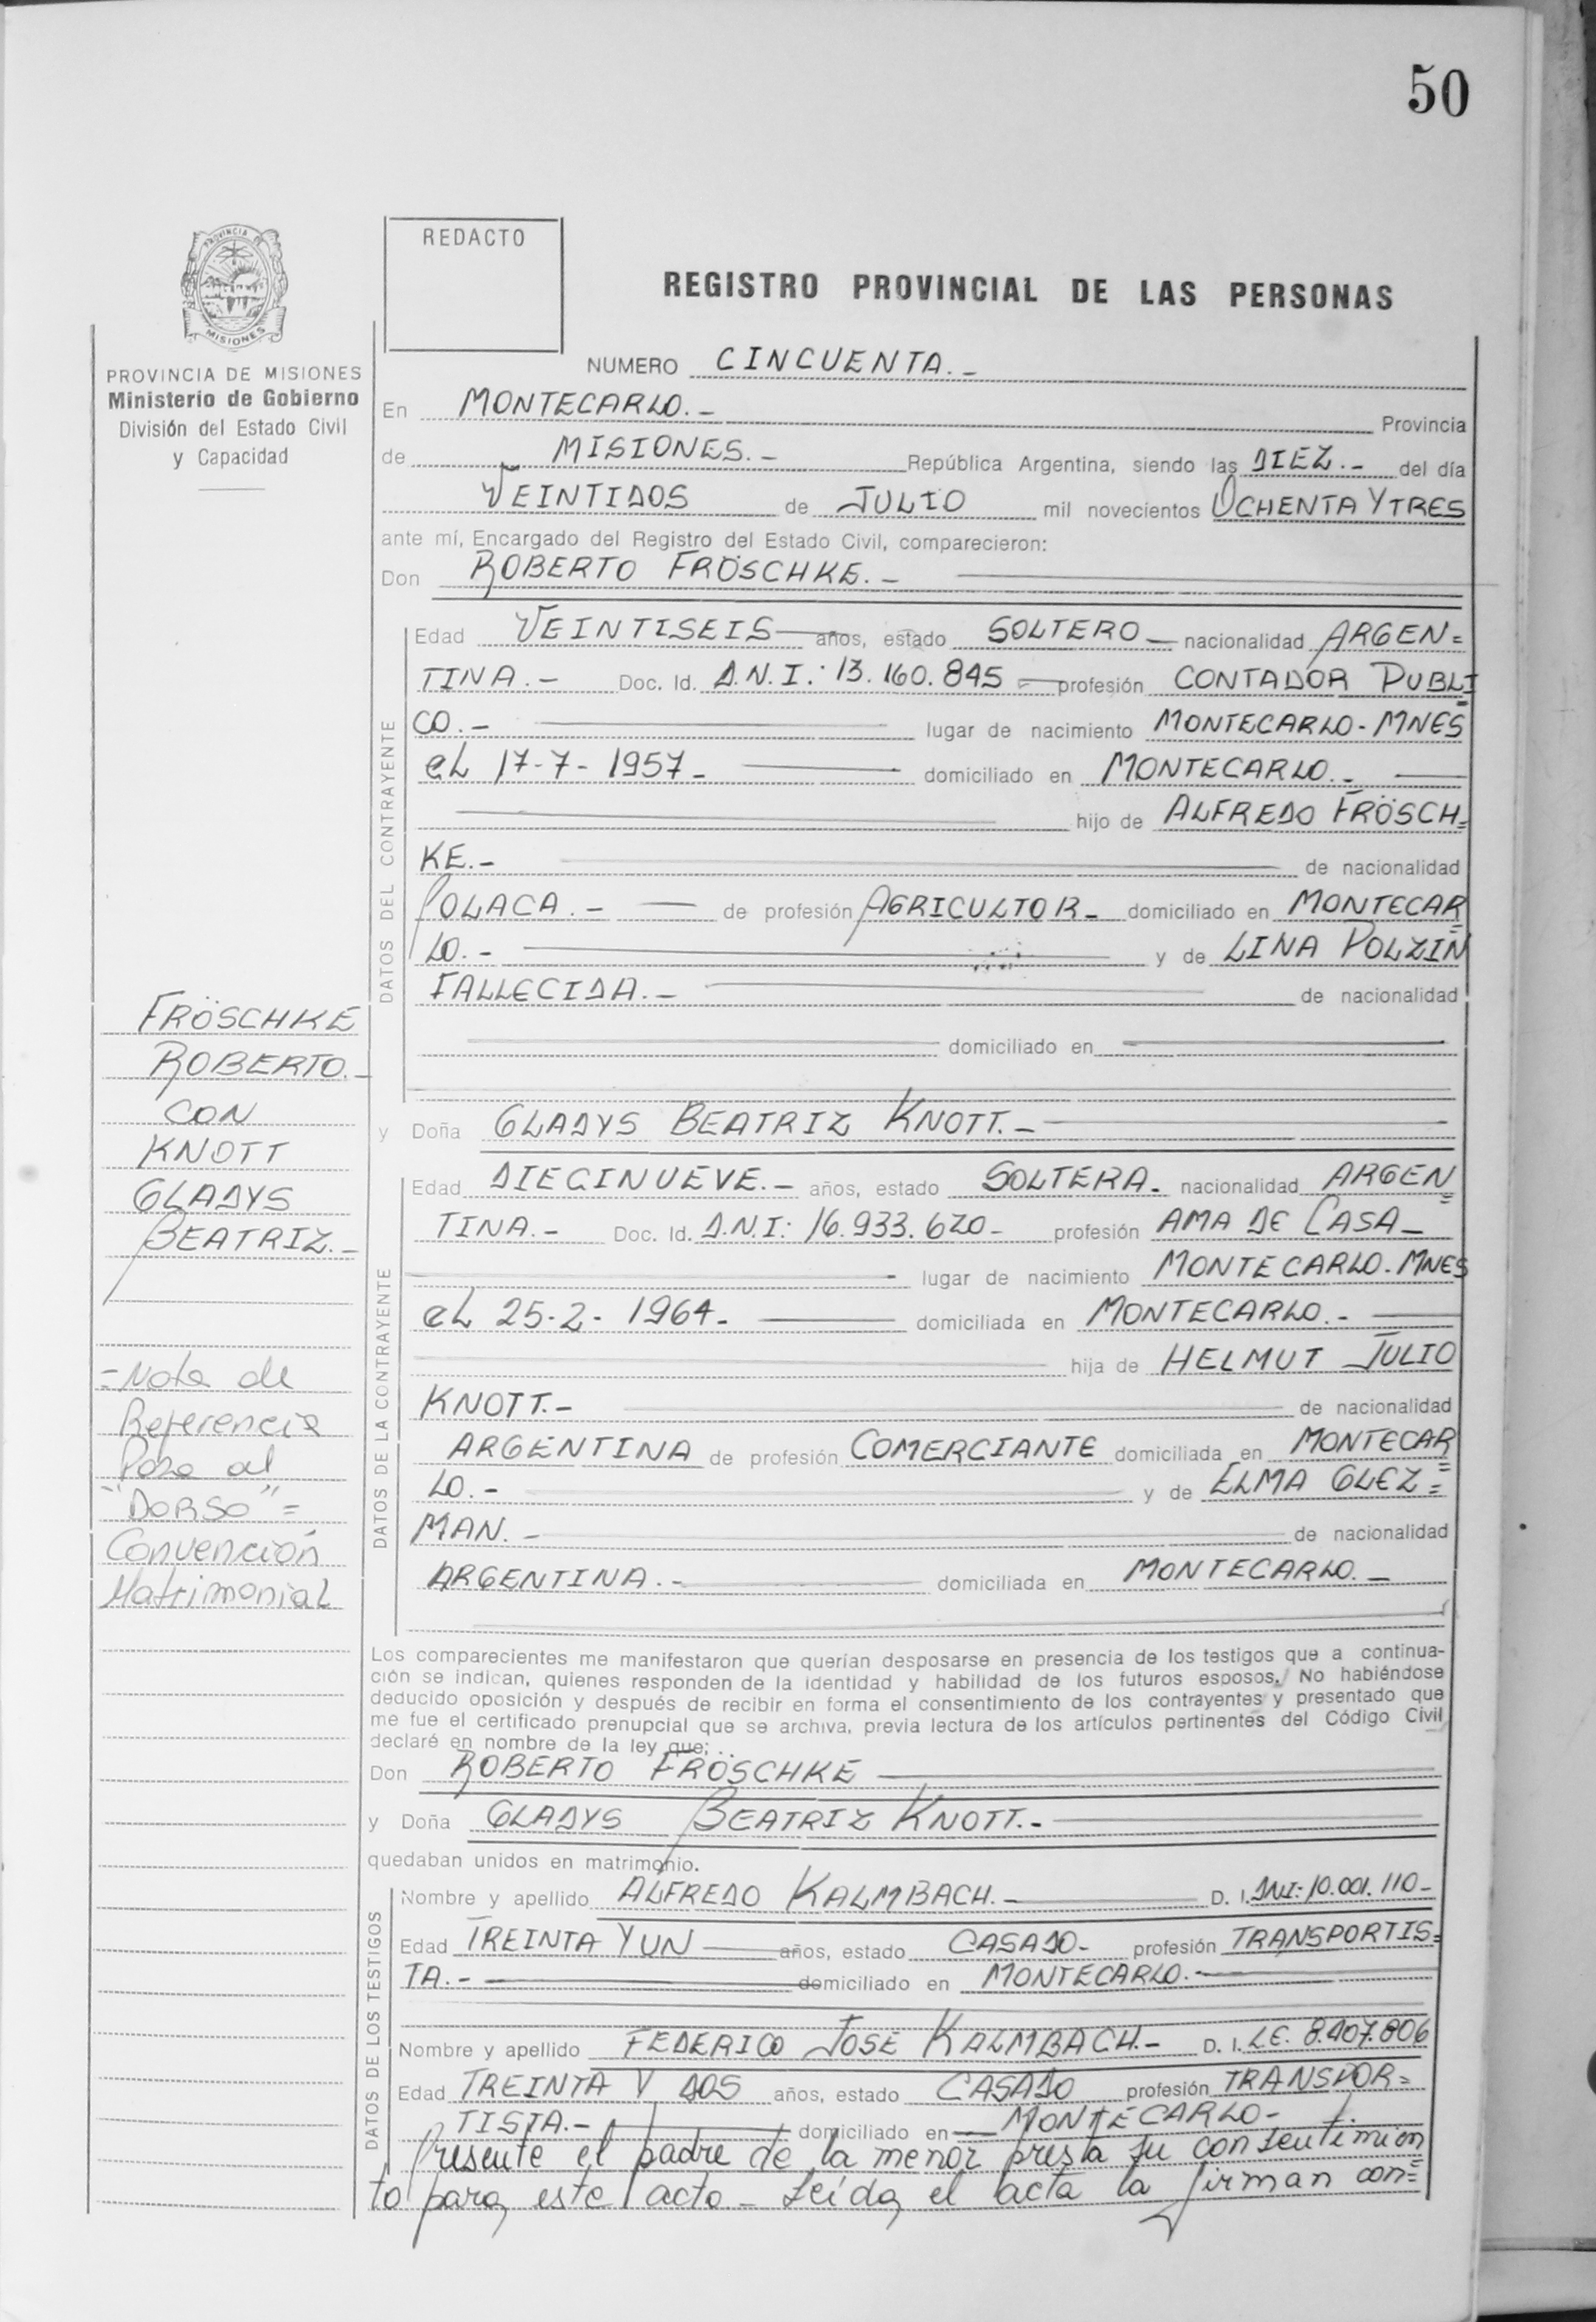 50
PROVINCIA DE
MISIONES
REDACTO
REGISTRO PROVINCIAL DE LAS PERSONAS
PROVINCIA DE MISIONES
Ministerio de Gobierno
División del Estado Civil
y Capacidad
NUMERO CINCUENTA.-
En MONTECARLO.- Provincia
de MISIONES.- República Argentina, siendo las DIEZ.- del día
VEINTIDOS de JULIO mil novecientos OCHENTA Y TRES
ante mí, Encargado del Registro del Estado Civil, comparecieron:
Don ROBERTO FRÖSCHKE.-
DATOS DEL CONTRAYENTE
Edad VEINTISEIS años, estado SOLTERO nacionalidad ARGEN=
TINA.- Doc. Id. D.N.I.: 13.160.845 profesión CONTADOR PUBLI
CO.- lugar de nacimiento MONTECARLO-MNES
el 17-7-1957- domiciliado en MONTECARLO.-
hijo de ALFREDO FRÖSCH=
KE.- de nacionalidad
POLACA.- de profesión AGRICULTOR- domiciliado en MONTECAR
LO.- y de LINA POLZIN
FALLECIDA.- de nacionalidad
domiciliado en
FRÖSCHKE
ROBERTO.-
CON
KNOTT
GLADYS
BEATRIZ.-
y Doña GLADYS BEATRIZ KNOTT.-
DATOS DE LA CONTRAYENTE
Edad DIECINUEVE.- años, estado SOLTERA- nacionalidad ARGEN
TINA.- Doc. Id. D.N.I: 16.933.620- profesión AMA DE CASA-
lugar de nacimiento MONTECARLO-MNES
el 25-2-1964- domiciliada en MONTECARLO.-
hija de HELMUT JULIO
KNOTT.- de nacionalidad
ARGENTINA de profesión COMERCIANTE domiciliada en MONTECAR
LO.- y de ELMA GLEZ=
MAN.- de nacionalidad
ARGENTINA.- domiciliada en MONTECARLO.-
=Nota de
Referencia
Pasa al
"DORSO"=
Convención
Matrimonial
Los comparecientes me manifestaron que querían desposarse en presencia de los testigos que a continua-
ción se indican, quienes responden de la identidad y habilidad de los futuros esposos. No habiéndose
deducido oposición y después de recibir en forma el consentimiento de los contrayentes y presentado que
me fue el certificado prenupcial que se archiva, previa lectura de los artículos pertinentes del Código Civil
declaré en nombre de la ley que:
Don ROBERTO FRÖSCHKE
y Doña GLADYS BEATRIZ KNOTT.-
quedaban unidos en matrimonio.
DATOS DE LOS TESTIGOS
Nombre y apellido ALFREDO KALMBACH.- D. I. DNI: 10.001.110-
Edad TREINTA Y UN años, estado CASADO- profesión TRANSPORTIS=
TA.- domiciliado en MONTECARLO.-
Nombre y apellido FEDERICO JOSÉ KALMBACH.- D. I. LE. 8.407.806
Edad TREINTA Y DOS años, estado CASADO profesión TRANSPOR=
TISTA.- domiciliado en MONTECARLO-
Presente el padre de la menor presta su consentimien
to para este acto- Leída el acta la firman con=